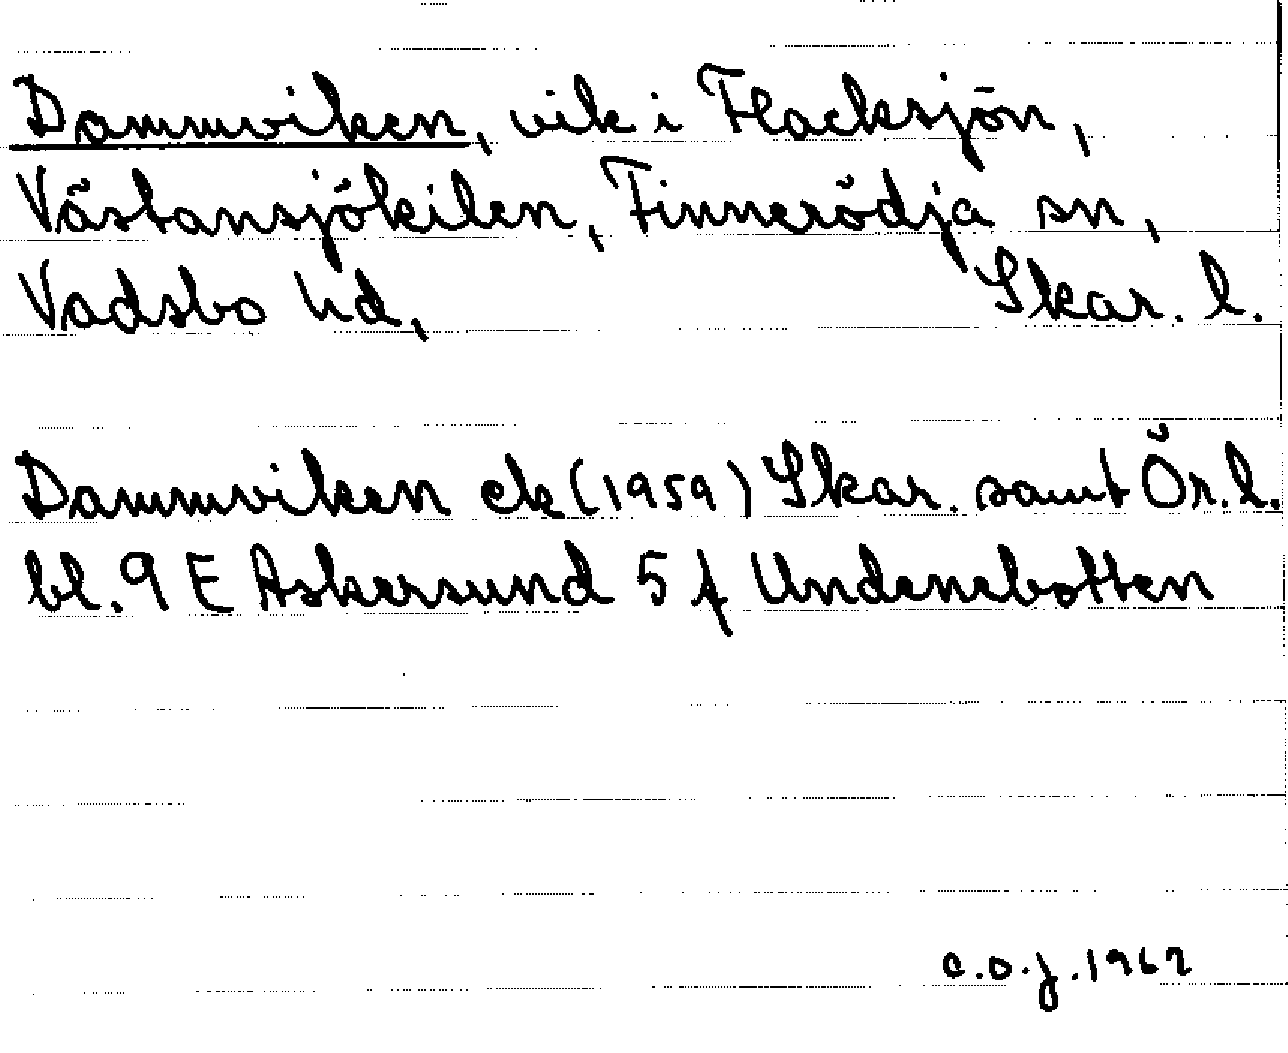 Dammviken, vik i Flacksjön,
Västansjökilen, Finnerödja sn,
Vadsbo hd, Skar. l.
Dammviken ek (1959) Skar. samt Ör. l.
bl. 9 E Askersund 5 f Undenebotten
C.O.J. 1962